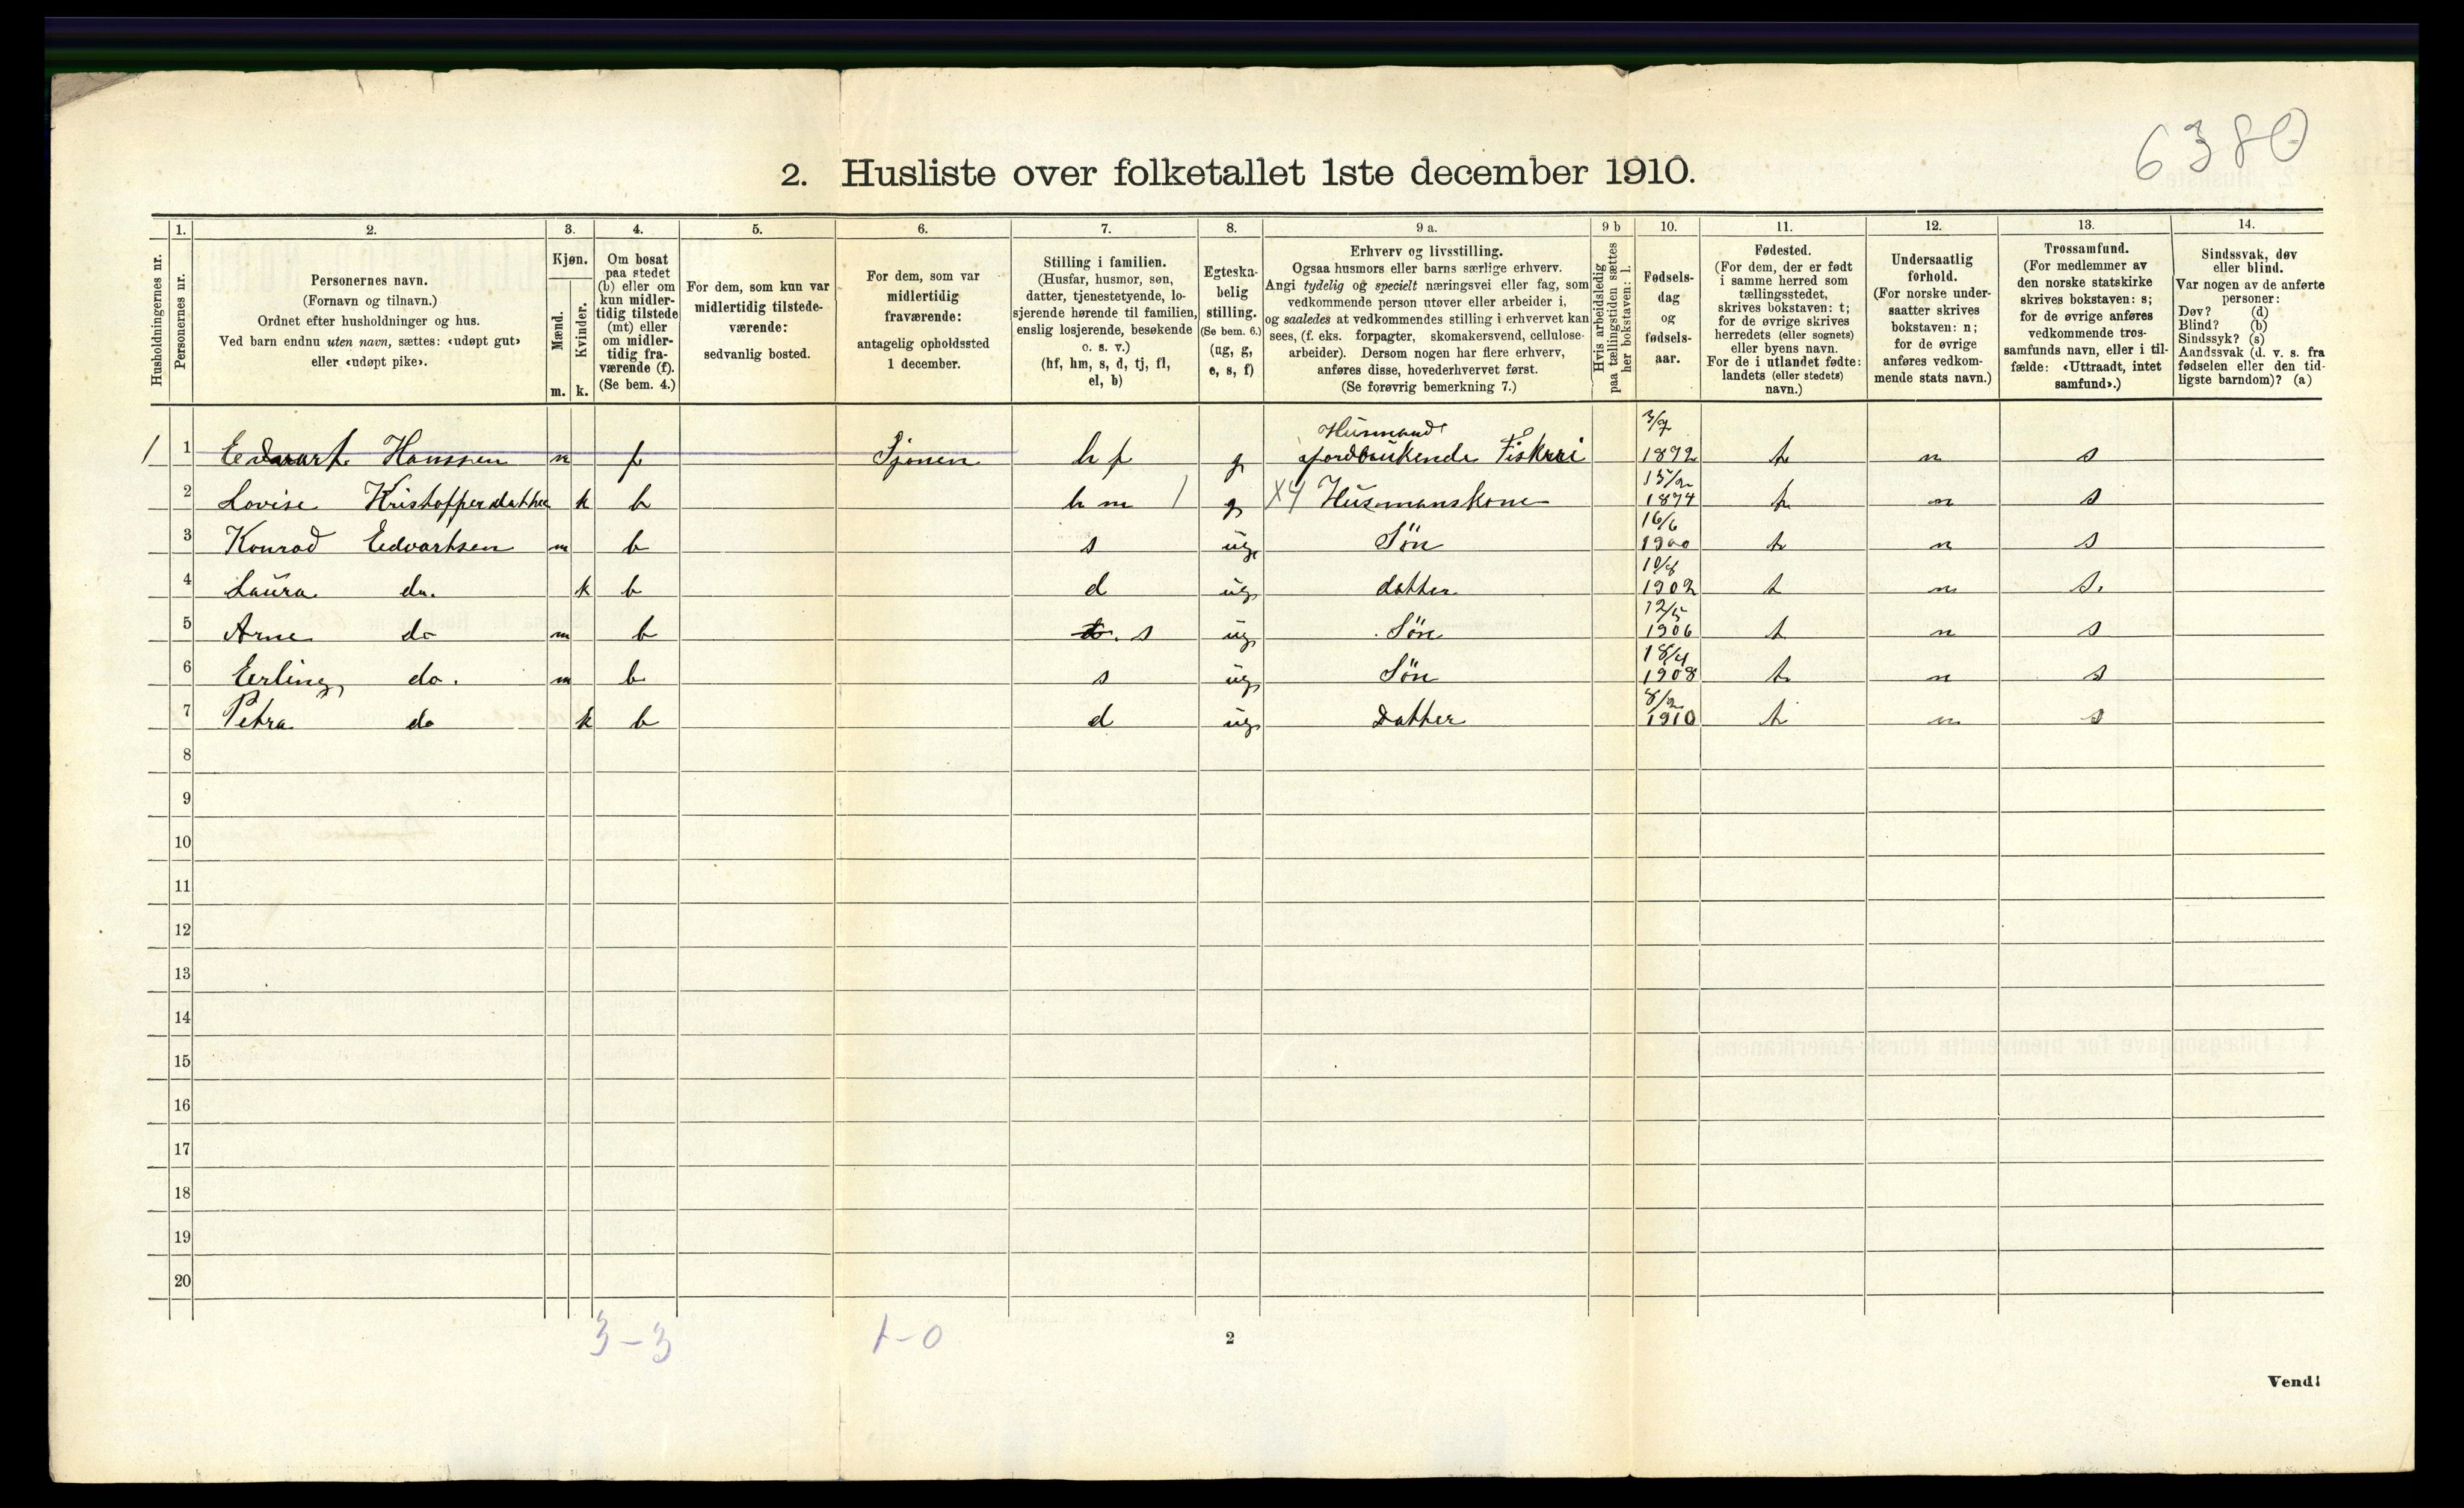 6380
2. Husliste over folketallet 1ste december 1910.
Husholdningernes nr.
1.
Personernes nr.
2.
Personernes navn.
(Fornavn og tilnavn.)
Ordnet efter husholdninger og hus.
Ved barn endnu uten navn, sættes: «udøpt gut»
eller «udøpt pike».
3.
Kjøn.
Mænd.
m.
Kvinder.
k.
4.
Om bosat
paa stedet
(b) eller om
kun midler-
tidig tilstede
(mt) eller
om midler-
tidig fra-
værende (f).
(Se bem. 4.)
5.
For dem, som kun var
midlertidig tilstede-
værende:
sedvanlig bosted.
6.
For dem, som var
midlertidig
fraværende:
antagelig opholdssted
1 december.
7.
Stilling i familien.
(Husfar, husmor, søn,
datter, tjenestetyende, lo-
sjerende hørende til familien,
enslig losjerende, besøkende
o. s. v.)
(hf, hm, s, d, tj, fl,
el, b)
8.
Egteska-
belig
stilling.
(Se bem. 6.)
(ug, g,
e, s, f)
9 a.
Erhverv og livsstilling.
Ogsaa husmors eller barns særlige erhverv.
Angi tydelig og specielt næringsvei eller fag, som
vedkommende person utøver eller arbeider i,
og saaledes at vedkommendes stilling i erhvervet kan
sees, (f. eks. forpagter, skomakersvend, cellulose-
arbeider). Dersom nogen har flere erhverv,
anføres disse, hovederhvervet først.
(Se forøvrig bemerkning 7.)
9 b
Hvis arbeidsledig
paa tællingstiden sættes
her bokstaven: l.
10.
Fødsels-
dag
og
fødsels-
aar.
11.
Fødested.
(For dem, der er født
i samme herred som
tællingsstedet,
skrives bokstaven: t;
for de øvrige skrives
herredets (eller sognets)
eller byens navn.
For de i utlandet fødte:
landets (eller stedets)
navn.)
12.
Undersaatlig
forhold.
(For norske under-
saatter skrives
bokstaven: n;
for de øvrige
anføres vedkom-
mende stats navn.)
13.
Trossamfund.
(For medlemmer av
den norske statskirke
skrives bokstaven: s;
for de øvrige anføres
vedkommende tros-
samfunds navn, eller i til-
fælde: «Uttraadt, intet
samfund».)
14.
Sindssvak, døv
eller blind.
Var nogen av de anførte
personer:
Døv? (d)
Blind? (b)
Sindssyk? (s)
Aandssvak (d. v. s. fra
fødselen eller den tid-
ligste barndom)? (a)
1 1 Edvart Hanssen m f Sjonen hf g Husmand jordbrukende Fiskeri 3/7 1872 t n s
2 Lovise Kristoffersdatter k b hm 1 g X4 Husmanskone 15/2 1874 t n s
3 Konrad Edvartsen m b s ug Søn 16/6 1900 t n s
4 Laura do. k b d ug datter 10/8 1902 t n s.
5 Arne do m b s ug Søn 12/5 1906 t n s
6 Erling do. m b s ug Søn 18/4 1908 t n s
7 Petra do k b d ug Datter 8/2 1910 t n s
8
9
10
11
12
13
14
15
16
17
18
19
20
3-3 1-0
2
Vend!